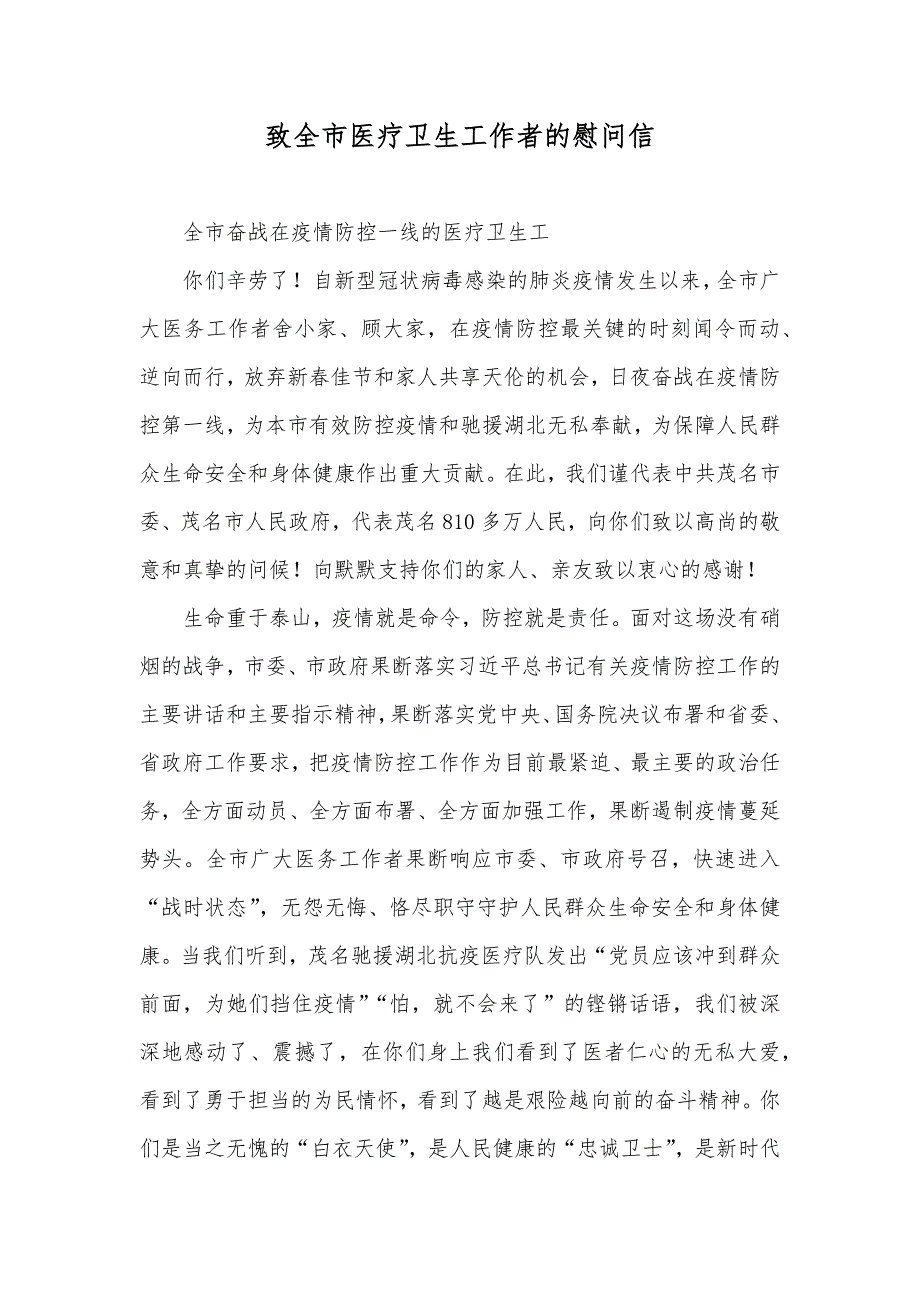 致全市医疗卫生工作者的慰问信
全市奋战在疫情防控一线的医疗卫生工
你们辛劳了！自新型冠状病毒感染的肺炎疫情发生以来，全市广
大医务工作者舍小家、顾大家，在疫情防控最关键的时刻闻令而动、
逆向而行，放弃新春佳节和家人共享天伦的机会，日夜奋战在疫情防
控第一线，为本市有效防控疫情和驰援湖北无私奉献，为保障人民群
众生命安全和身体健康作出重大贡献。在此，我们谨代表中共茂名市
委、茂名市人民政府，代表茂名 810 多万人民，向你们致以高尚的敬
意和真挚的问候！向默默支持你们的家人、亲友致以衷心的感谢！
生命重于泰山，疫情就是命令，防控就是责任。面对这场没有硝
烟的战争，市委、市政府果断落实习近平总书记有关疫情防控工作的
主要讲话和主要指示精神，果断落实党中央、国务院决议布署和省委、
省政府工作要求，把疫情防控工作作为目前最紧迫、最主要的政治任
务，全方面动员、全方面布署、全方面加强工作，果断遏制疫情蔓延
势头。全市广大医务工作者果断响应市委、市政府号召，快速进入
“战时状态”，无怨无悔、恪尽职守守护人民群众生命安全和身体健
康。当我们听到，茂名驰援湖北抗疫医疗队发出“党员应该冲到群众
前面，为她们挡住疫情”“怕，就不会来了”的铿锵话语，我们被深
深地感动了、震撼了，在你们身上我们看到了医者仁心的无私大爱，
看到了勇于担当的为民情怀，看到了越是艰险越向前的奋斗精神。你
们是当之无愧的“白衣天使”，是人民健康的“忠诚卫士”，是新时代